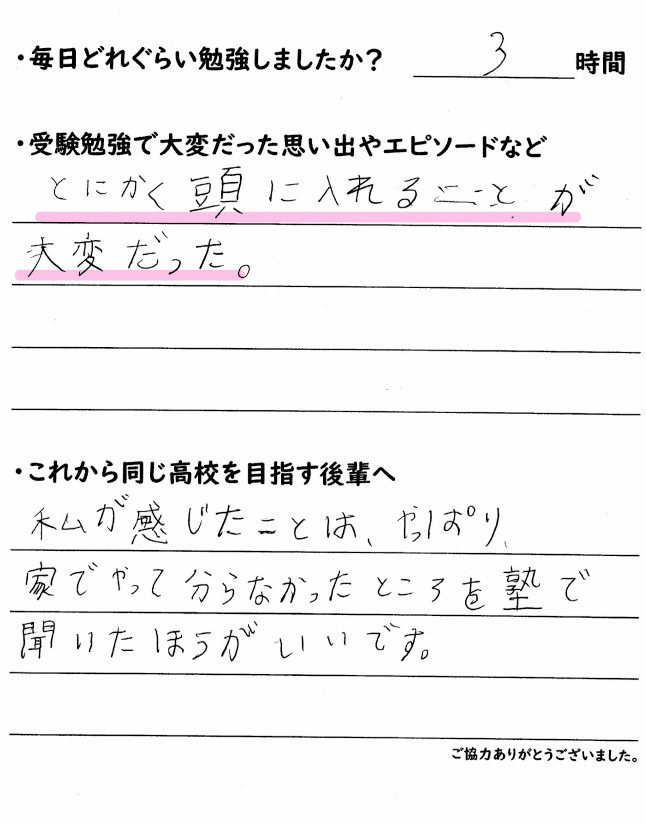 ・毎日どれぐらい勉強しましたか? 3 時間
・受験勉強で大変だった思い出やエピソードなど
とにかく頭に入れることが
大変だった。
・これから同じ高校を目指す後輩へ
私が感じたことは、やっぱり、
家でやって分らなかったところを塾で
聞いたほうがいいです。
ご協力ありがとうございました。